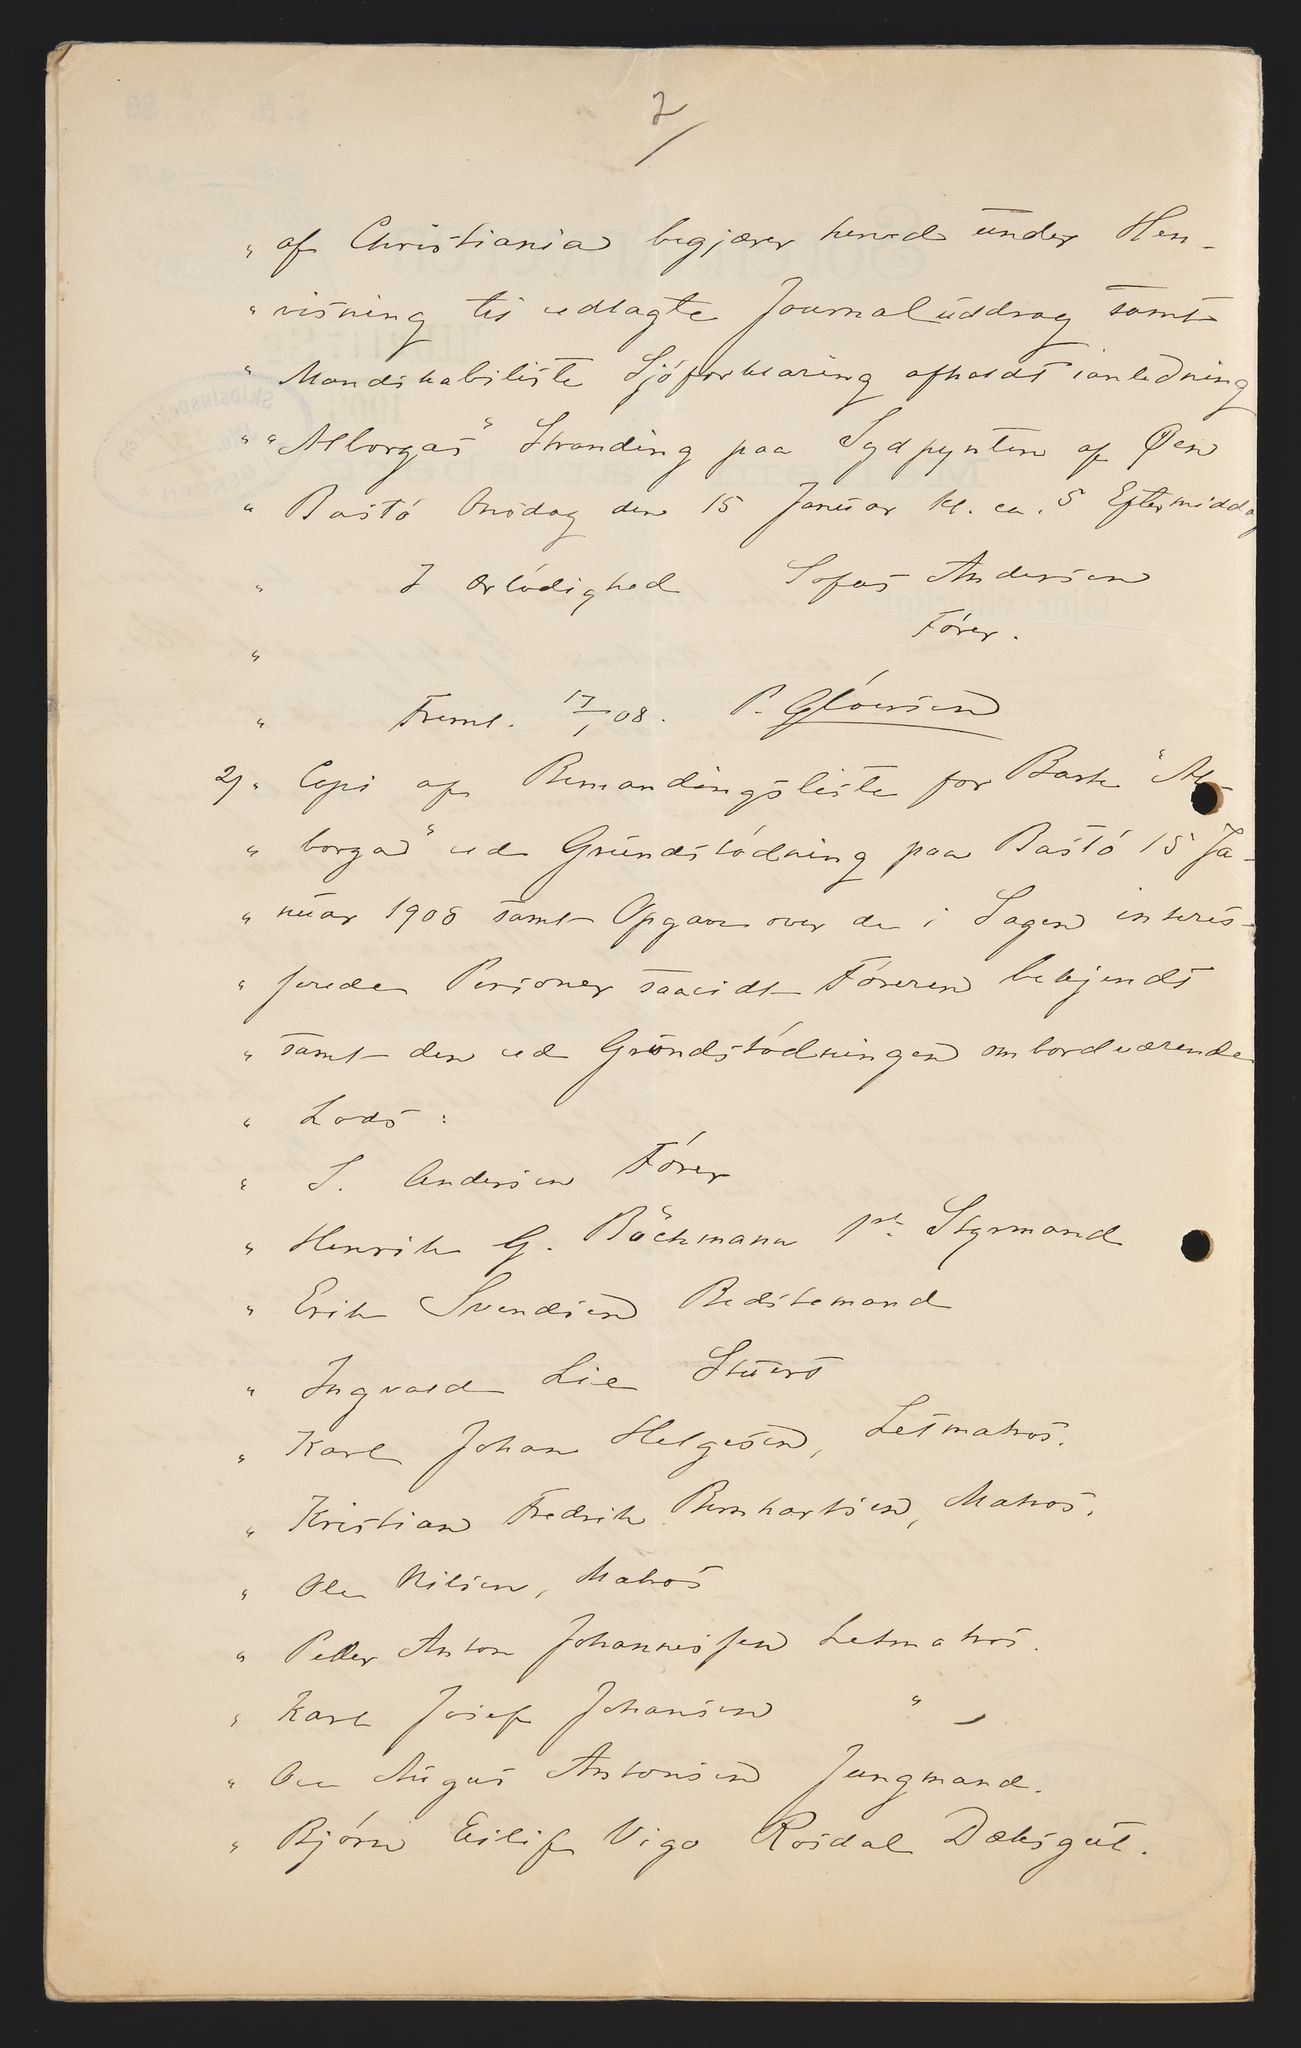 2/
" af Christiania begjærer herved under Hen-
" visning til vedlagte Journaluddrag samt
" Mandskabsliste Sjöforklaring afholdt ianledning
" "Alborgas" Stranding paa Sydpynten af Øen
" Bastö Onsdag den 15 Januar kl. ca. 5 Eftermiddag
" I ærbödighed Sofus Andersen
" Förer.
" Freml. 17/1 08. P. Glöersen
2) " Copi af Bemandingsliste for Bark "Al-
" borga" ved Grundstödning paa Bastö 15 Ja-
" nuar 1908 samt Opgave over de i Sagen interes-
" serede Personer saavidt Föreren bekjendt
" samt den ved Grundstödningen ombordværende
" Lods :
" S. Andersen Förer
" Henrik G. Böckmann 1ste Styrmand
" Erik Svendsen Bedstemand
" Ingvald Lie Stuert
" Karl Johan Helgesen, Letmatros.
" Kristian Fredrik Bernhartsen, Matros.
" Ole Nilsen, Matros
" Peder Anton Johannessen Letmatros.
" Karl Josef Johansen " ,
" Ole August Antonsen Jungmand.
" Björn Eilif Vigo Rosdal Dæksgut.